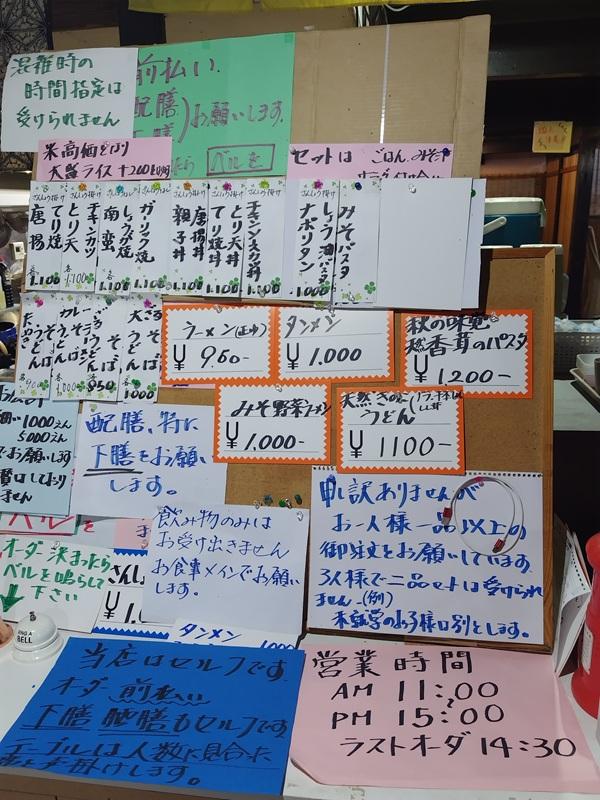 混雑時の
時間指定は
受けられません
前払い.
配膳
下膳
お願いします.
ベルを
米高価となり
大盛ライス+200
セットは ごはん. みそ汁
唐揚
てり焼
とり天
チキンカツ
南蛮
しょうが焼
ガーリック焼
親子丼
唐揚丼
てり焼丼
とり天丼
ナポリタン
しょう油パスタ
みそパスタ
1.100
1.100
1.100
1.000
ラーメン(正油)
¥ 950-
タンメン
¥ 1.000
秋の味覚
香茸のパスタ
¥ 1.200-
みそ野菜ラーメン
¥ 1,000-
天然きのこ
うどん
¥ 1100-
1000えん
5000えん
でお願いします
配膳、特に
下膳をお願い
します。
飲み物のみは
お受け出きません
お食事メインでお願い
します。
申し訳ありませんが
お一人様一品以上の
御注文をお願いしています
3人様で二品セットは受けられ
ません.(例)
未就学のお子様は別とします。
オーダ決まったら
ベルを鳴らして
下さい
¥1.
RING A
BELL
タンメン
当店はセルフです.
オーダ 前払い
下膳 配膳もセルフです
テーブルは人数に見合った
営業時間
AM 11:00
PM 15:00
ラストオーダ 14:30